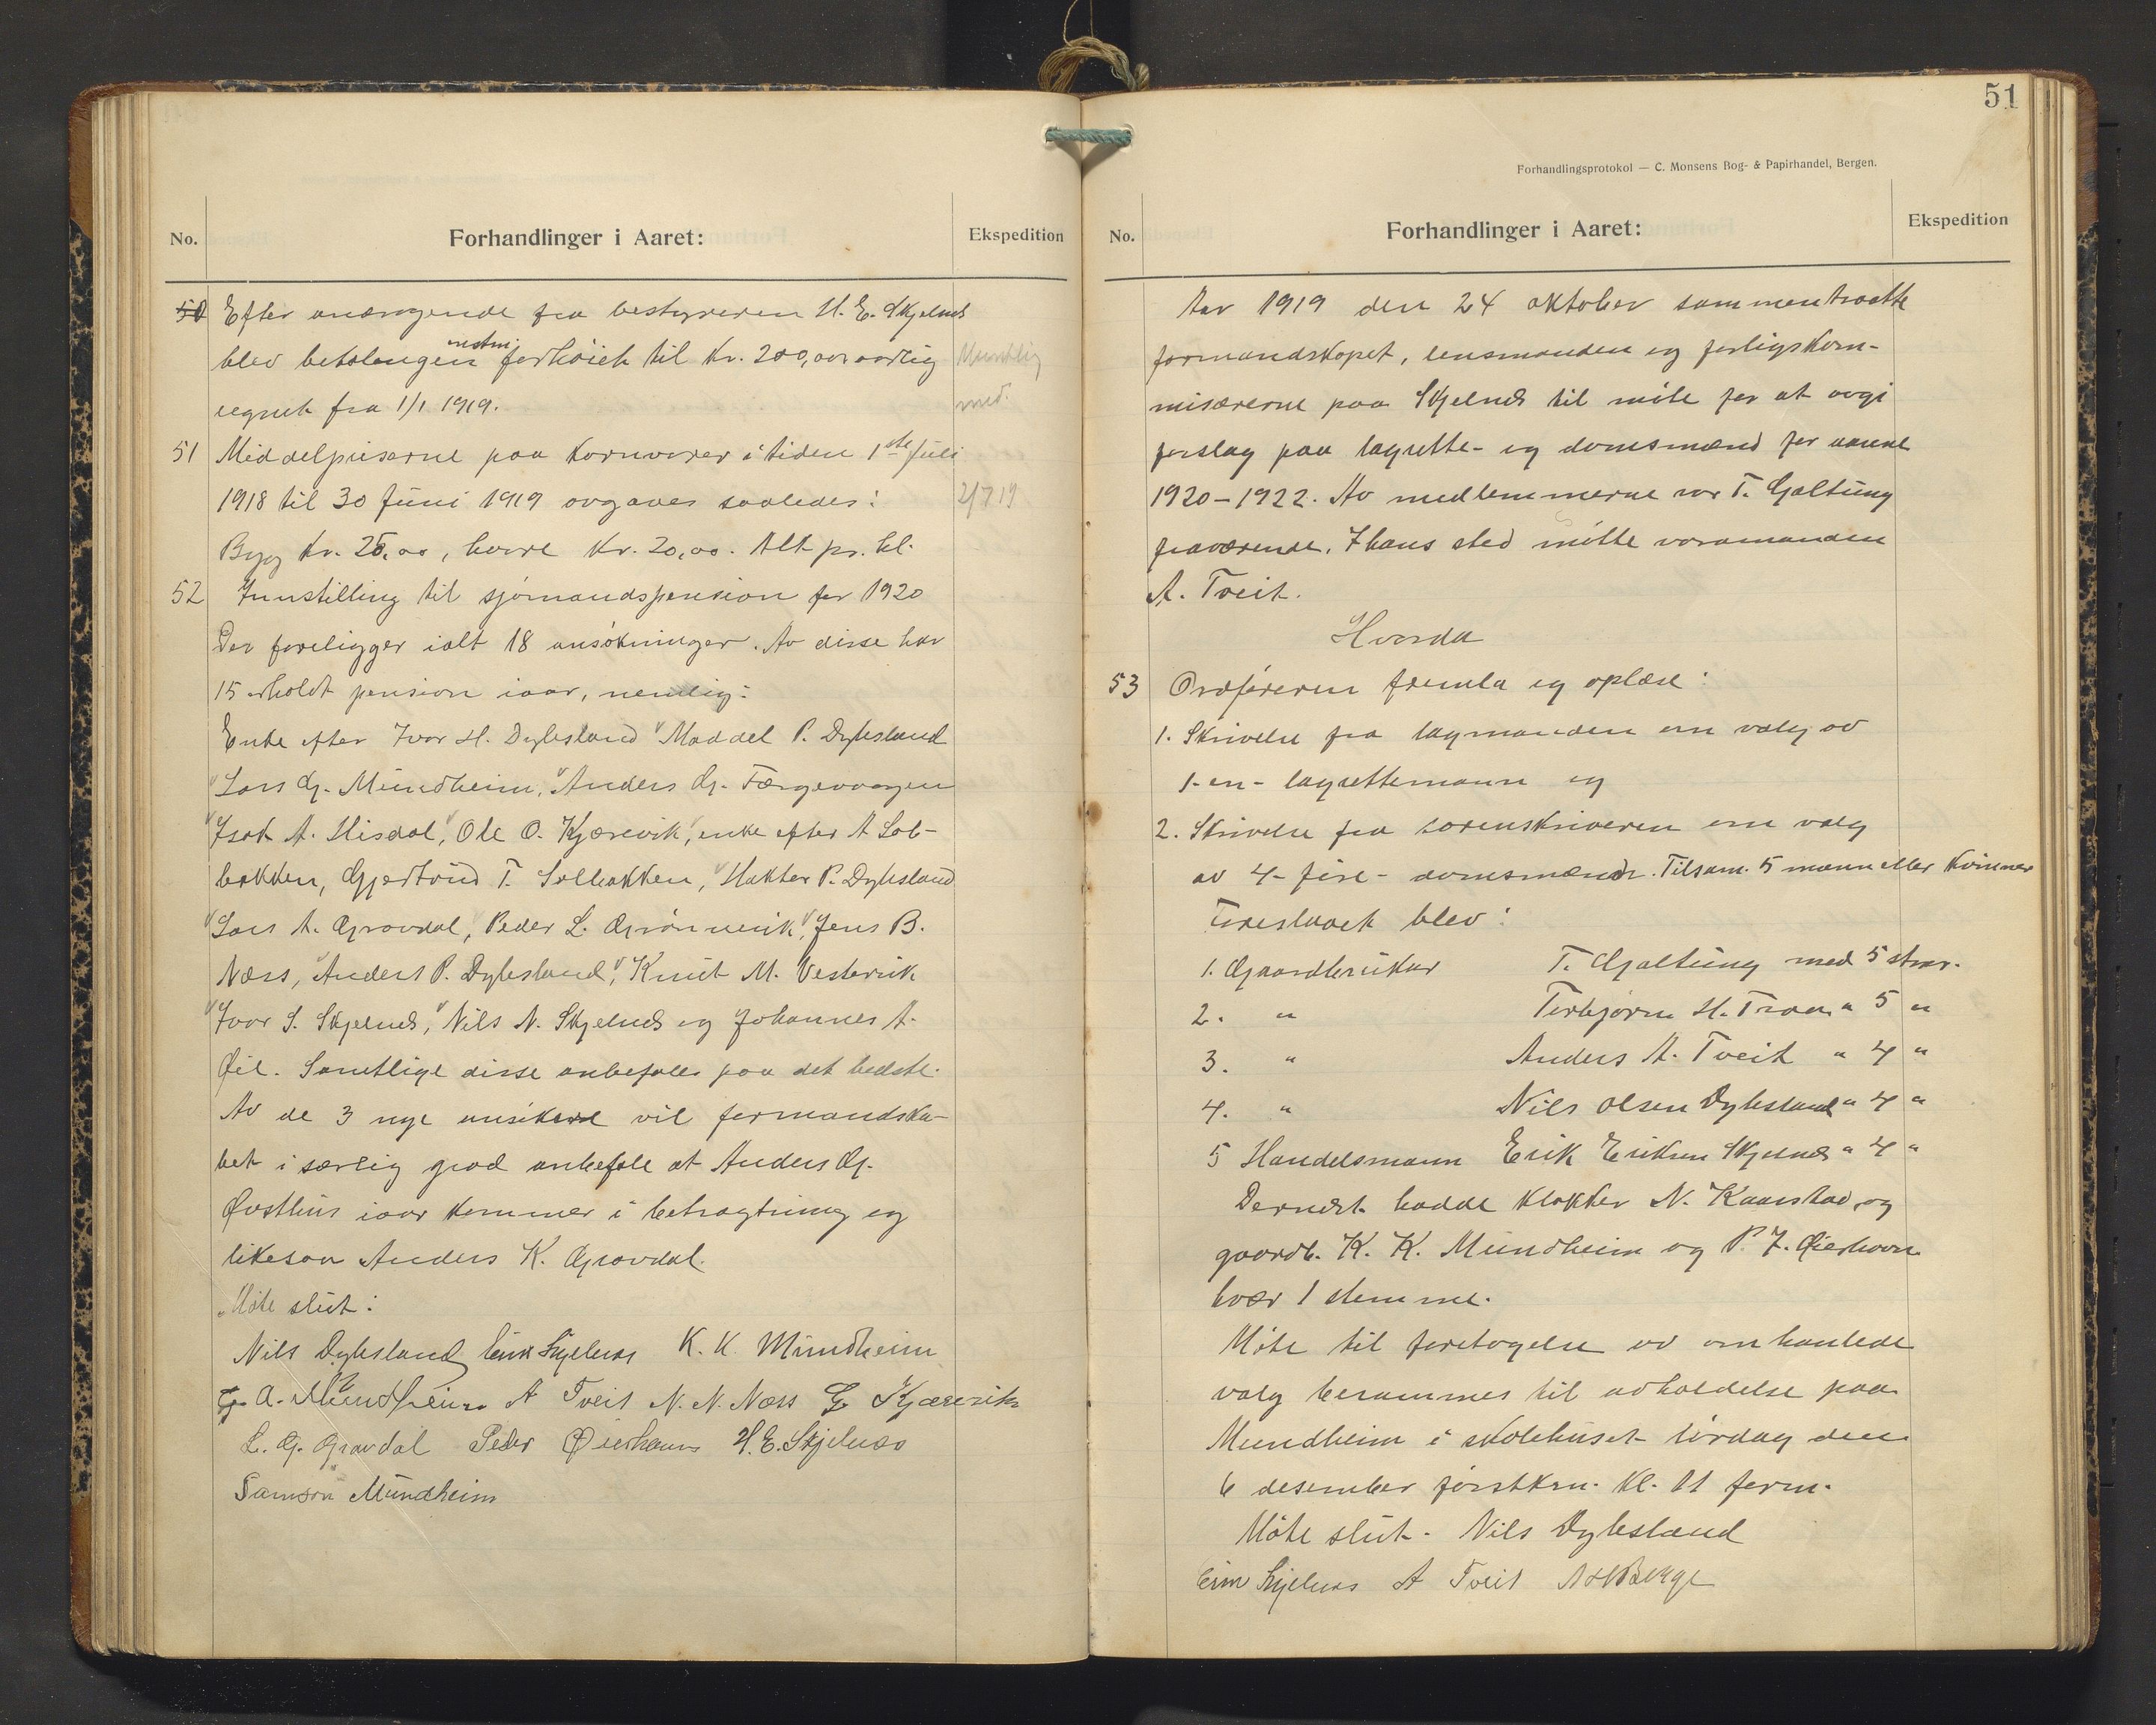 No.
Forhandlinger i Aaret:
Ekspedition
50 Efter andragende fra bestyreren H. E. Skjelnes
blev betalingen forhöiet til Kr. 200,00 aarlig
regnet fra 1/1 1919.
Mundtlig
med.
51 Middelpriserne paa Kornvarer i tiden 1ste Juli
1918 til 30 Juni 1919 avgaves saaledes:
2/7 19
Byg Kr. 25,00, havre Kr. 20,00. Alt pr. hl.
52 Innstilling til sjömandspension for 1920
Der foreligger ialt 18 ansökninger. Av disse har
15 erholdt pension iaar, nemlig:
Enke efter Ivar H. Dybsland Maddel P. Dybsland
Lars G. Mundheim, Anders G. Færgevaagen
Isak A. Hisdal, Ole O. Kjærevik, enke efter A Sol-
bakken, Gjertrud T. Solbakken, Halkter P. Dybsland
Lars A. Gravdal, Peder L. Grönnevik, Jens B.
Næss, Anders P. Dybesland, Knut M. Vestervik
Ivar S. Skjelnes, Nils N. Skjelnes og Johannes A.
Öie. Samtlige disse anbefales paa det bedste.
Av de 3 nye ansökere vil formandska-
bet i særlig grad anbefale at Anders G.
Östhus iaar kommer i betragtning og
likesaa Anders K. Gravdal.
Möte slut:
Nils Dybesland Eirik Skjelnes K. K. Mundheim
G. A. Mundheim A Tveit N. N. Næss G Kjærevik
L. G. Gravdal Peder Öierhavn H. E. Skjelnes
Samson Mundheim
51
Forhandlingsprotokol — C. Monsens Bog- & Papirhandel, Bergen.
No.
Forhandlinger i Aaret:
Ekspedition
Aar 1919 den 24 oktober sammentraatte
formandskapet, lensmanden og forligskom-
misærerne paa Skjelnes til möte for at avgi
forslag paa lagrette- og domsmænd for aarene
1920-1922. Av medlemmerne var T. Galtung
fraværende. I hans sted mötte varamanden
A. Tveit.
Hvorda
53 Ordföreren fremla og oplæse:
1. Skrivelse fra lagmanden om valg av
1-en- lagrettemann og
2. Skrivelse fra sorenskriveren om valg
av 4-fire- domsmænd. Tilsam. 5 mænn eller Kvinner
Foreslaaet blev:
1. Gaardbruker T. Galtung med 5 stem.
2. " Torbjörn H. Traa " 5 "
3. " Anders A. Tveit " 4 "
4. " Nils Olsen Dybesland " 4 "
5 Handelsmann Erik Eriksen Skjelnes " 4 "
Dernæst hadde Klokker N. Kaarstad, og
gaardb. K. K. Mundheim og P. J. Öierhavn
hver 1 stemme.
Möte til foretagelse av omhanlede
valg berammes til avholdelse paa
Mundheim i skolehuset lördag den
6 desember förstkom. Kl. 11 form.
Möte slut. Nils Dybesland
Eirik Skjelnes A Tveit